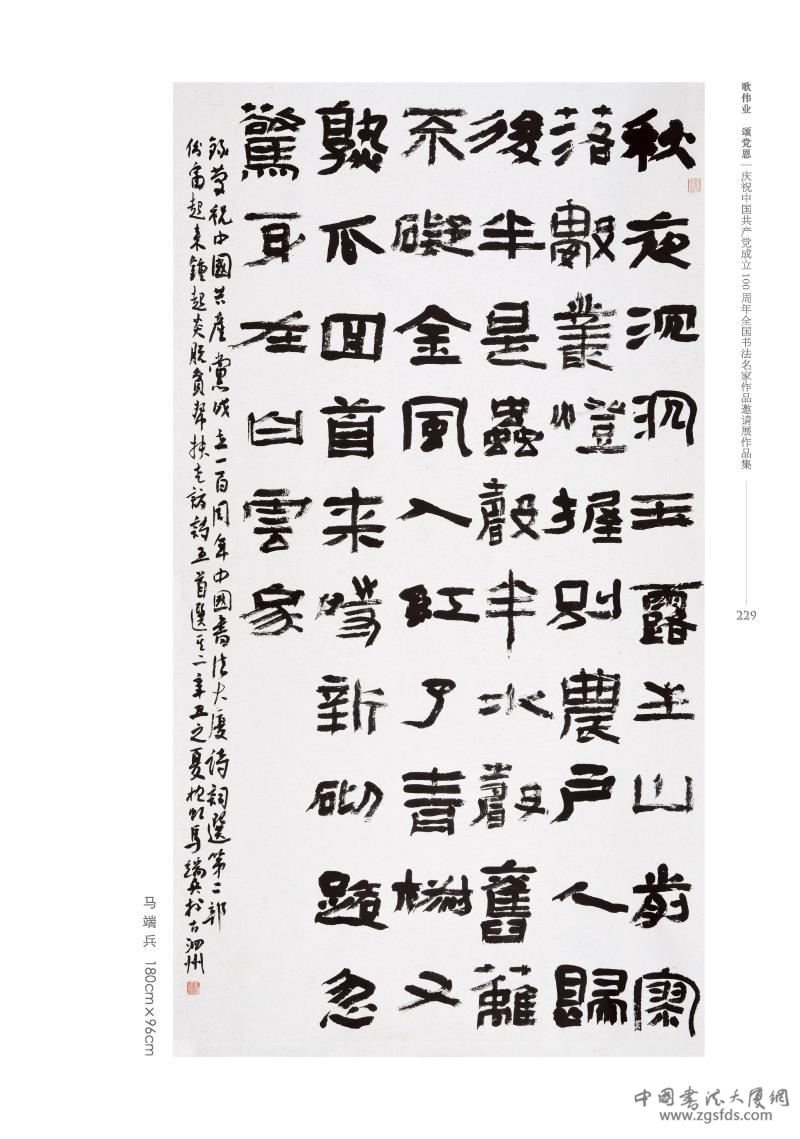 秋夜沉沉玉露生山前寥
落數叢燈握别農戶人歸
後半是蟲聲半水聲舊籬
不礙金風入紅了青樹又
熟瓜回首来時新砌路忽
驚身在白雲家
錄慶祝中國共產黨成立一百周年中國書法大廈詩詞選第二部
富起来鍾起炎脱貧帮扶走訪詩五首選其二辛丑之夏虹馬端兵於古泗州
歌伟业 颂党恩|庆祝中国共产党成立100周年全国书法名家作品邀请展作品集
229
马端兵 180cm×96cm
中国书法大厦網
www.zgsfds.com